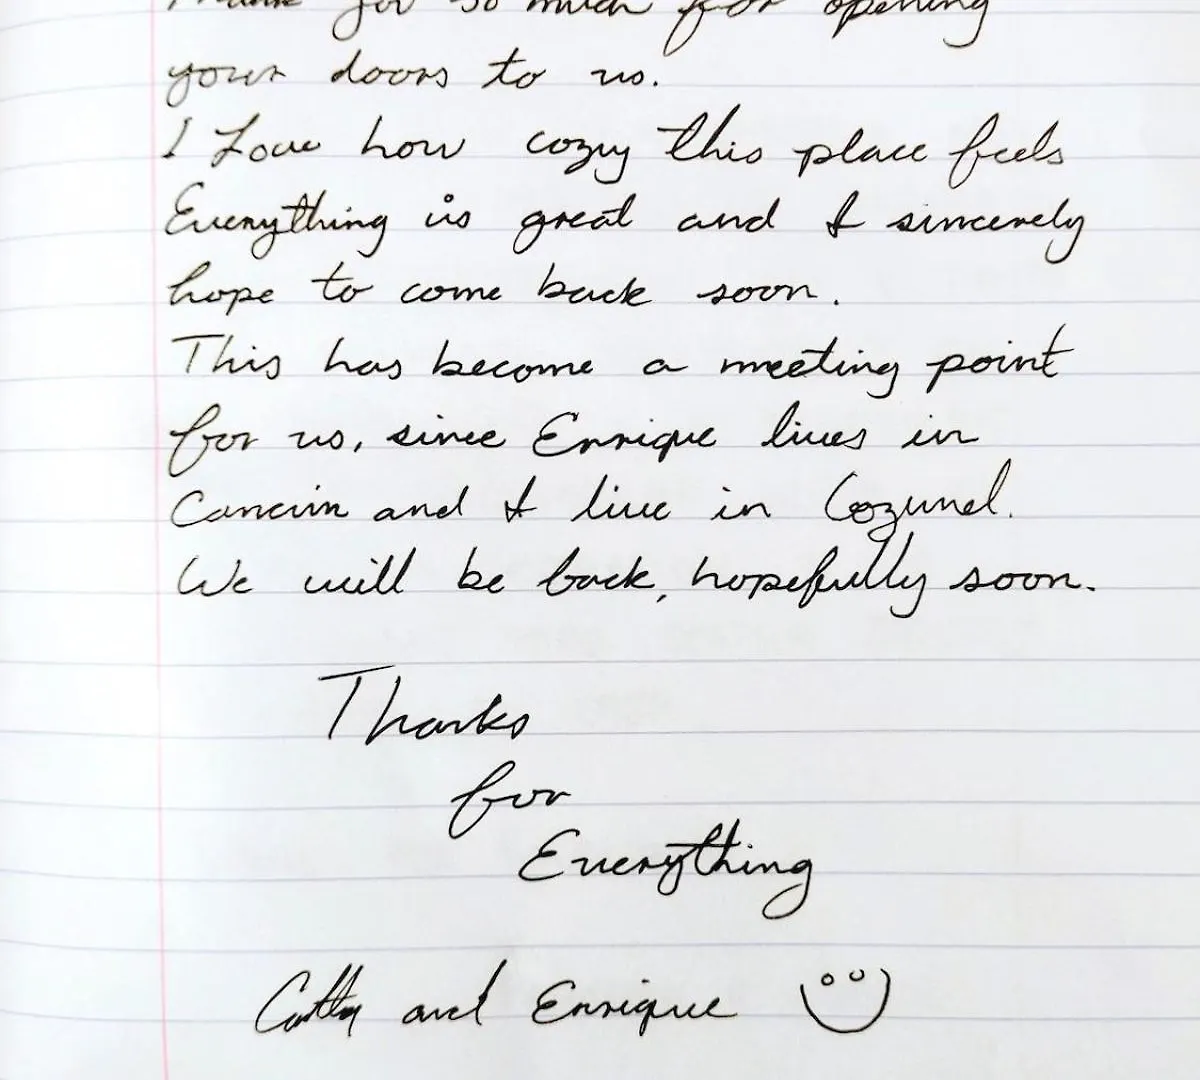 Thank you so much for opening
your doors to us.
I Love how cozy this place feels
Everything is great and I sincerely
hope to come back soon.
This has become a meeting point
for us, since Enrique lives in
Cancún and I live in Cozumel.
We will be back, hopefully soon.
Thanks
for
Everything
and Enrique